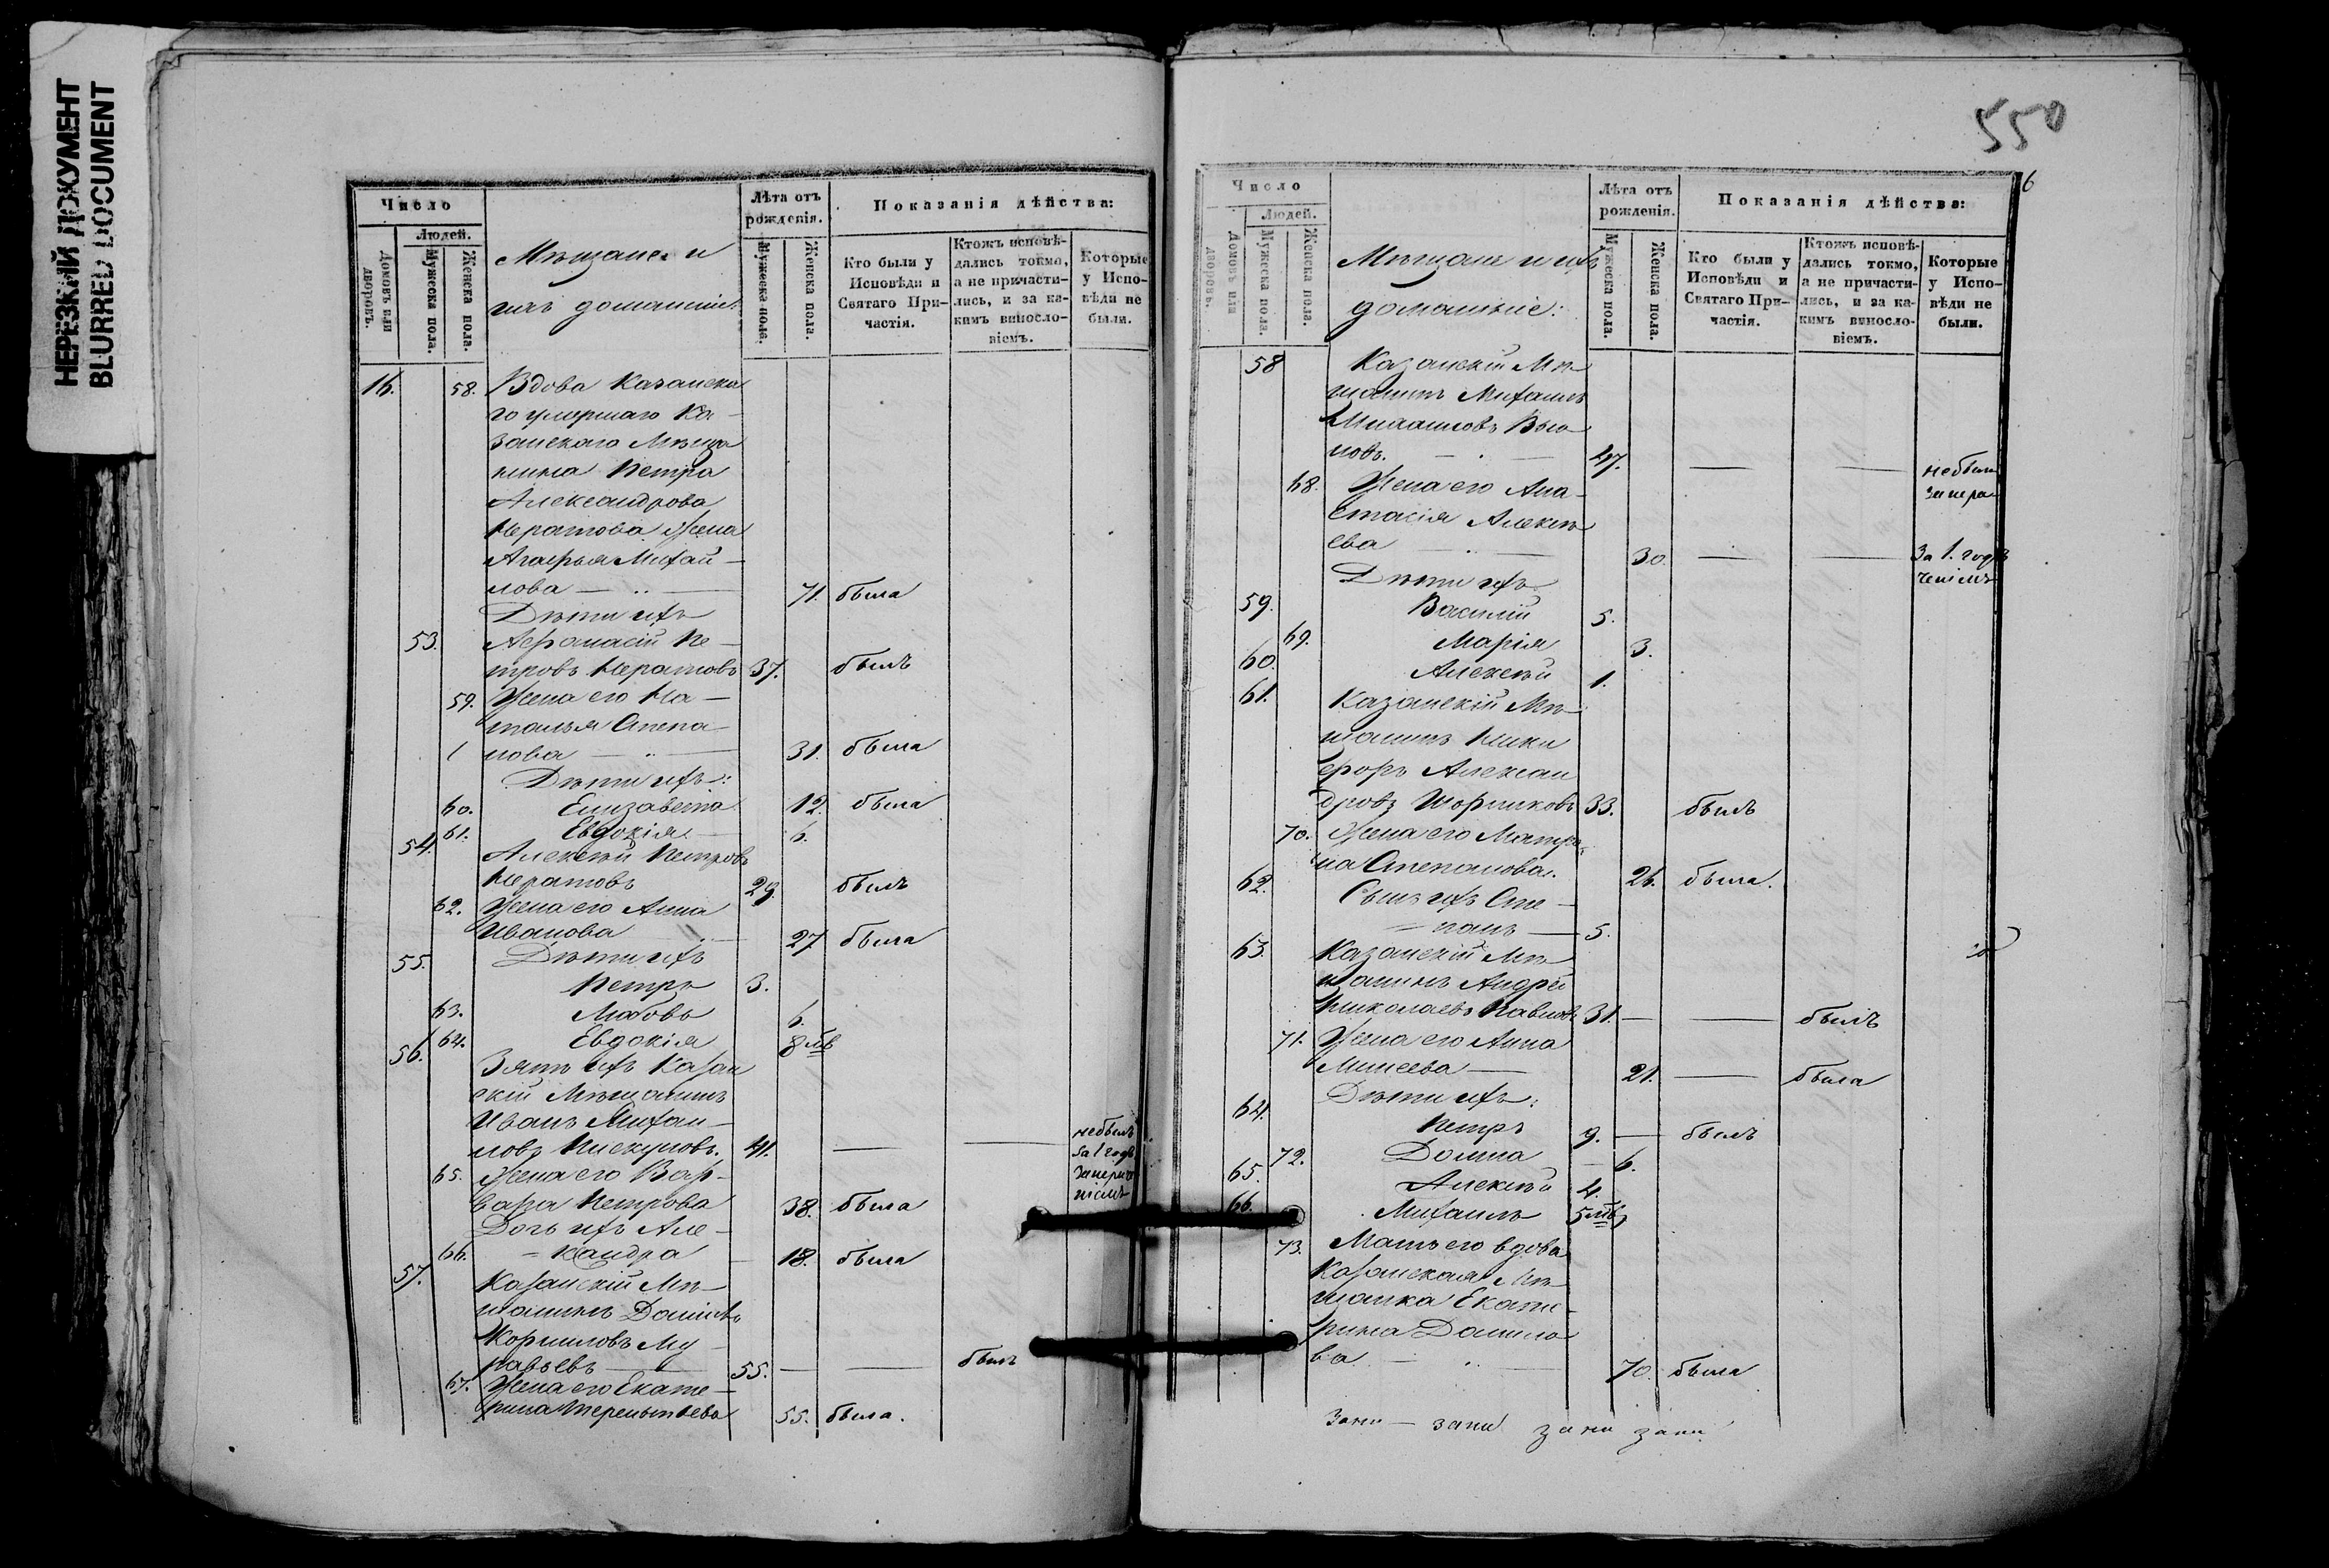 НЕРЕЗКИЙ ДОКУМЕНТ
BLURRED DOCUMENT
Число
Людей.
Домовъ или дворовъ.
Мужеска пола.
Женска пола.
Мѣщане и
ихъ домашніе:
Лѣта отъ рожденія.
Мужеска пола.
Женска пола.
Показанія дѣйства:
Кто были у Исповѣди и Святаго Причастія.
Ктожъ исповѣдались токмо, а не причастились, и за какимъ винословіемъ.
Которые у Исповѣди не были.
16. 58. Вдова Казанска
го умершаго Ка-
занскаго Мѣща
нина Петра
Александрова
Нератова Жена
Агафья Михай-
лова 71. была
Дѣти ихъ
53. Афанасій Пе-
тровъ Нератовъ 37. былъ
59. Жена его На-
талья Степа
нова 31. была
Дѣти ихъ:
60. Елизавета 12. была
61. Евдокія 6.
54. Алексѣй Петровъ
Нератовъ 29. былъ
62. Жена его Анна
Иванова 27 была
55. Дѣти ихъ
Петръ 3.
63. Любовь 6.
64. Евдокія 8 мѣ
56. Зять ихъ Казан
скій Мѣщанинъ
Иванъ Михаи-
ловъ Пискуновъ. 41. — — небылъ
за 1 годъ
65. Жена его Вар-
вара Петрова 38. была
Дочь ихъ Але-
66. ксандра 18. была
57. Казанскій Мѣ
щанинъ Даніилъ
Корниловъ Му
равьевъ 55. — — былъ
67. Жена его Екате-
рина Терентьева 55. была.
550
6
Число
Людей.
Домовъ или дворовъ.
Мужеска пола.
Женска пола.
Мѣщане и ихъ
домашніе:
Лѣта отъ рожденія.
Мужеска пола.
Женска пола.
Показанія дѣйства:
Кто были у Исповѣди и Святаго Причастія.
Ктожъ исповѣдались токмо, а не причастились, и за какимъ винословіемъ.
Которые у Исповѣди не были.
58 Казанскій Мѣ
щанинъ Михаилъ
Михаиловъ Вью
новъ. 47. — — небыли
68. Жена его Ана-
стасія Алексѣ
ева 30. — — За 1. годъ
Дѣти ихъ
59. Василій 5.
69. Марія 3.
60. Алексѣй 1.
61. Казанскій Мѣ
щанинъ Ники
форъ Алексан
дровъ Шорниковъ 33. былъ
70. Жена его Матре
на Степанова. 26. была.
62. Сынъ ихъ Сте-
панъ 5.
63. Казанскій Мѣ
щанинъ Андрей
Николаевъ Павловъ 31. — — былъ
71. Жена его Анна
Минеева 21. — была
Дѣти ихъ:
64. Петръ 9. — былъ
72. Домна 6.
65. Алексѣй 4.
66. Михаилъ 5 мѣ
73. Мать его вдова
Казанская Мѣ
щанка Екате-
рина Данило
ва 70. была
зани зани